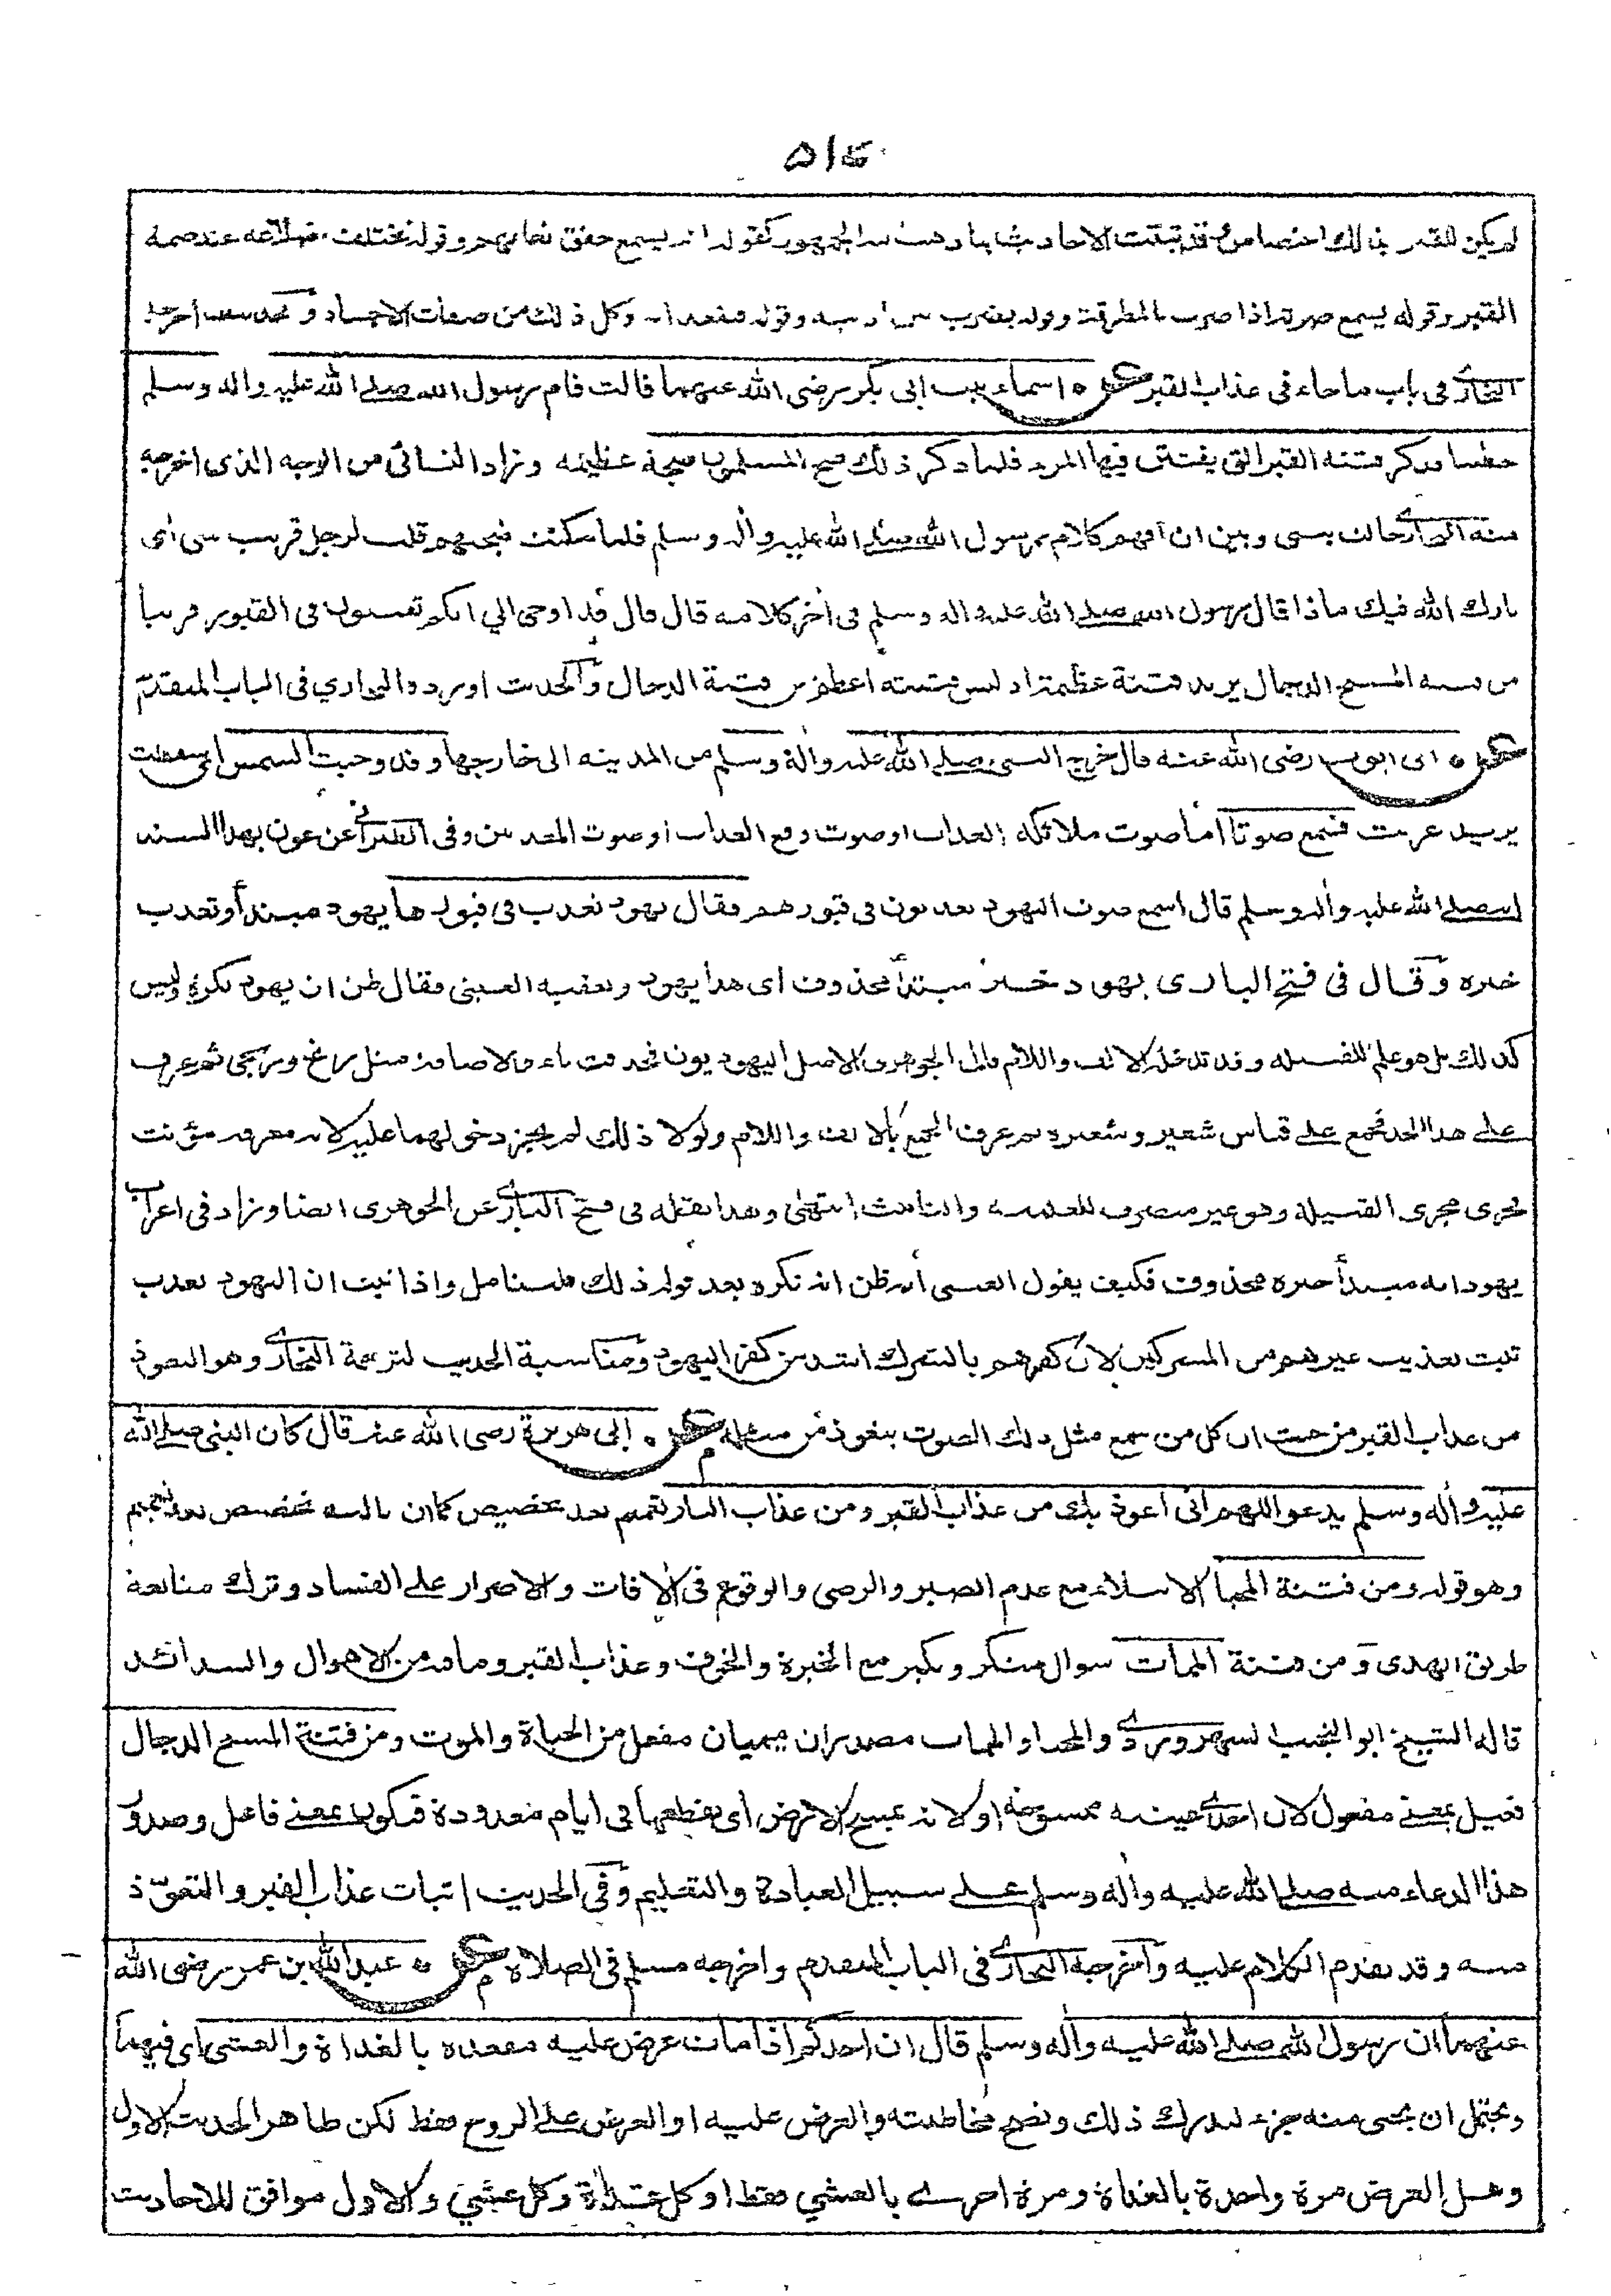 ٥١٤
لم يكن للقبر بذلك اختصاص وقد ثبتت الاحاديث بما ذهب اليه الجمهور كقوله انه يسمع خفق نعالهم وقوله تختلف اضلاعه عند ضمة
القبر وقوله يسمع صوته اذا ضرب بالمطرقة وقوله يضرب بين اذنيه وقوله فيقعدانه وكل ذلك من صفات الاجساد و اخرجه
البخاري فى باب ما جاء فى عذاب القبر عن اسماء بنت ابى بكر رضى الله عنهما قالت قام رسول الله صلى الله عليه واله وسلم
خطيبا فذكر فتنة القبر التى يفتتن فيها المرء فلما ذكر ذلك ضج المسلمون ضجة عظيمة وزاد النسائى من الوجه الذى اخرجه
منه البخاري حالت بينى وبين ان افهم كلام رسول الله صلى الله عليه واله وسلم فلما سكنت ضجتهم قلت لرجل قريب منى اى
بارك الله فيك ماذا قال رسول الله صلى الله عليه واله وسلم فى اخر كلامه قال قال قد اوحى الي انكم تفتنون فى القبور قريبا
من فتنة المسيح الدجال يريد فتنة عظيمة اذ ليس فتنة اعظم من فتنة الدجال والحديث اورده البخاري فى الباب المتقدم
عن ابى ايوب رضى الله عنه قال خرج النبى صلى الله عليه واله وسلم من المدينة الى خارجها وقد وجبت الشمس اى سقطت
يريد غربت فسمع صوتا اما صوت ملائكة العذاب او صوت وقع العذاب او صوت المعذبين وفى الطبراني عن عون بهذا السند
انه صلى الله عليه واله وسلم قال اسمع صوت اليهود يعذبون فى قبورهم فقال يهود تعذب فى قبورها يهود مبتدأ وتعذب
خبره وقال فى فتح البارى يهود خبر مبتدأ محذوف اى هذا يهود وتعقبه العينى فقال ظن ان يهود نكرة وليس
كذلك بل هو علم للقبيلة وقد تدخله الالف واللام قال الجوهرى الاصل اليهوديون فحذفت ياء الاضافة مثل زنج وزنجى ثم عرف
على هذا الحد فجمع على قياس شعير وشعيرة ثم عرف الجمع بالالف واللام ولولا ذلك لم يجز دخولهما عليه لانه معرفة مؤنث
يجرى مجرى القبيلة وهو غير منصرف للعلمية والتانيث انتهى وهذا نقله فى فتح الباري عن الجوهرى ايضا وزاد فى اعراب
يهود انه مبتدأ خبره محذوف فكيف يقول العينى انه ظن انه نكرة بعد قوله ذلك فليتامل واذا ثبت ان اليهود تعذب
ثبت تعذيب غيرهم من المشركين لان كفرهم بالشرك اشد من كفر اليهود ومناسبة الحديث لترجمة البخاري وهو التعوذ
من عذاب القبر من حيث ان كل من سمع مثل ذلك الصوت يتعوذ من مثله عن ابى هريرة رضى الله عنه قال كان النبى صلى الله
عليه واله وسلم يدعو اللهم انى اعوذ بك من عذاب القبر ومن عذاب النار تعميم بعد تخصيص كما ان تاليه تخصيص بعد تعميم
وهو قوله ومن فتنة المحيا الابتلاء مع عدم الصبر والرضى والوقوع فى الافات والاصرار على الفساد وترك متابعة
طريق الهدى ومن فتنة الممات سوال منكر ونكير مع الحيرة والخوف وعذاب القبر وما فيه من الاهوال والشدائد
قاله الشيخ ابو النجيب السهروردي والمحيا والممات مصدران ميميان مفعل من الحياة والموت ومن فتنة المسيح الدجال
فعيل بمعنى مفعول لان احدى عينيه ممسوحة او لانه يمسح الارض اى يقطعها فى ايام معدودة فيكون بمعنى فاعل وصدور
هذا الدعاء منه صلى الله عليه واله وسلم على سبيل العبادة والتعليم وفى الحديث اثبات عذاب القبر والتعوذ
منه وقد تقدم الكلام عليه واخرجه البخاري فى الباب المتقدم واخرجه مسلم فى الصلاة عن عبد الله بن عمر رضى الله
عنهما ان رسول الله صلى الله عليه واله وسلم قال ان احدكم اذا مات عرض عليه مقعده بالغداة والعشى اى فيهما
ويحتمل ان يحيى منه جزء ليدرك ذلك وتصح مخاطبته والعرض عليه او العرض على الروح فقط لكن ظاهر الحديث الاول
وهل العرض مرة واحدة بالغداة ومرة اخرى بالعشي فقط او كل غداة وكل عشي والاول موافق للاحاديث